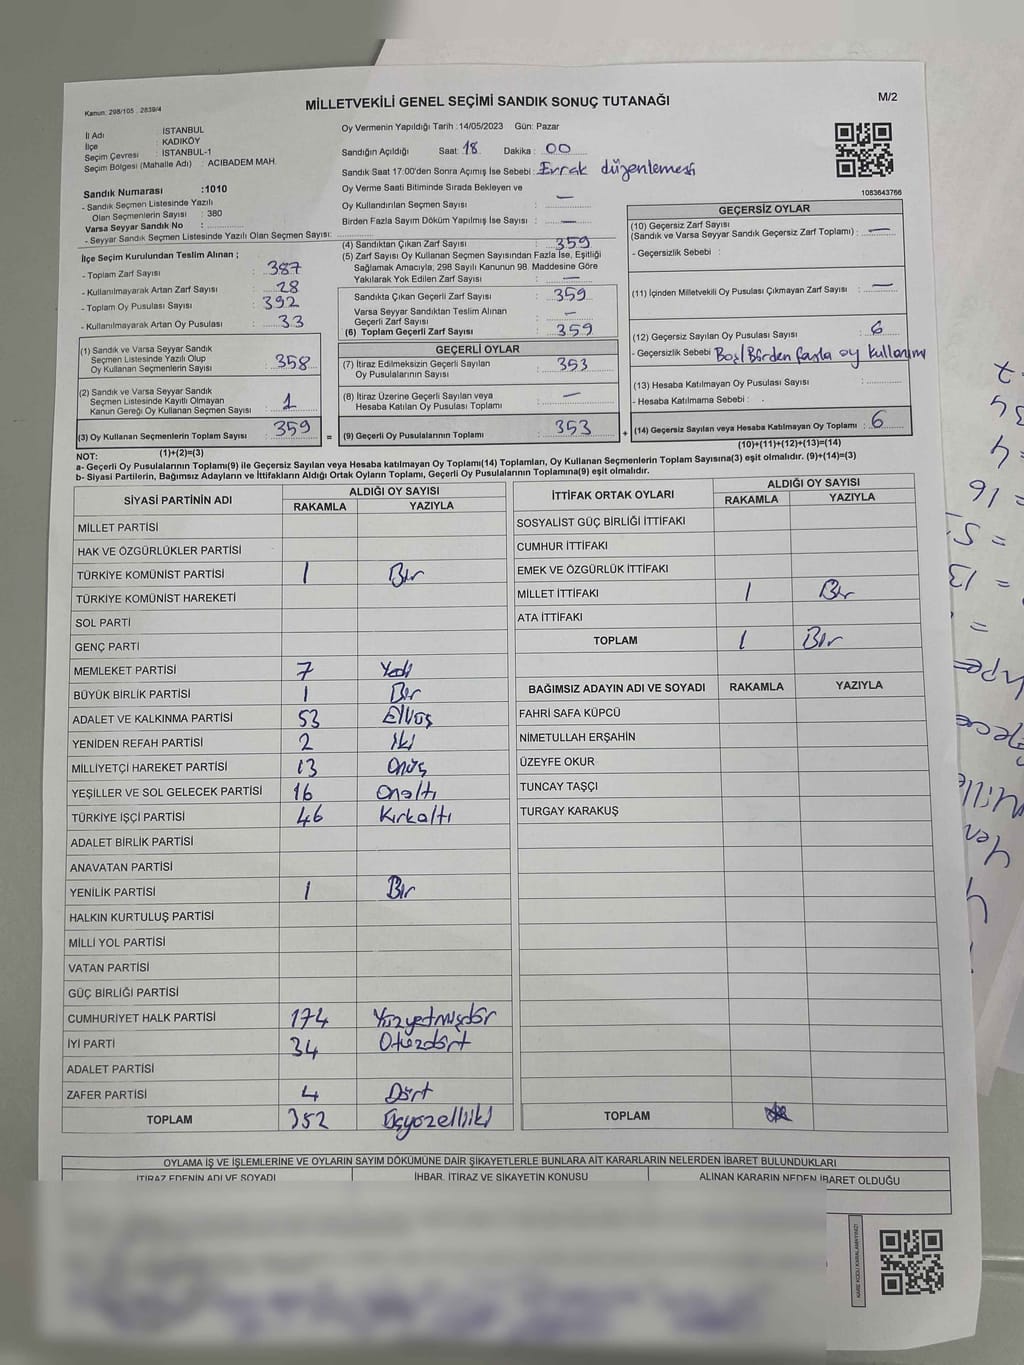 Kanun: 298/105 : 2839/4
MİLLETVEKİLİ GENEL SEÇİMİ SANDIK SONUÇ TUTANAĞI
M/2
İl Adı : İSTANBUL
İlçe : KADIKÖY
Seçim Çevresi : İSTANBUL-1
Seçim Bölgesi (Mahalle Adı) : ACIBADEM MAH.
Sandık Numarası :1010
- Sandık Seçmen Listesinde Yazılı
Olan Seçmenlerin Sayısı : 380
Varsa Seyyar Sandık No :
- Seyyar Sandık Seçmen Listesinde Yazılı Olan Seçmen Sayısı:
İlçe Seçim Kurulundan Teslim Alınan ;
- Toplam Zarf Sayısı : 387
- Kullanılmayarak Artan Zarf Sayısı : 28
- Toplam Oy Pusulası Sayısı : 392
- Kullanılmayarak Artan Oy Pusulası : 33
(1) Sandık ve Varsa Seyyar Sandık
Seçmen Listesinde Yazılı Olup
Oy Kullanan Seçmenlerin Sayısı : 358
(2) Sandık ve Varsa Seyyar Sandık
Seçmen Listesinde Kayıtlı Olmayan
Kanun Gereği Oy Kullanan Seçmen Sayısı : 1
(3) Oy Kullanan Seçmenlerin Toplam Sayısı : 359
(1)+(2)=(3)
Oy Vermenin Yapıldığı Tarih :14/05/2023 Gün: Pazar
Sandığın Açıldığı Saat: 18 Dakika : 00
Sandık Saat 17:00'den Sonra Açılmış İse Sebebi : Evrak düzenlemesi
Oy Verme Saati Bitiminde Sırada Bekleyen ve
Oy Kullandırılan Seçmen Sayısı : —
Birden Fazla Sayım Döküm Yapılmış İse Sayısı : —
(4) Sandıktan Çıkan Zarf Sayısı : 359
(5) Zarf Sayısı Oy Kullanan Seçmen Sayısından Fazla İse, Eşitliği
Sağlamak Amacıyla, 298 Sayılı Kanunun 98. Maddesine Göre
Yakılarak Yok Edilen Zarf Sayısı : —
Sandıkta Çıkan Geçerli Zarf Sayısı : 359
Varsa Seyyar Sandıktan Teslim Alınan
Geçerli Zarf Sayısı : —
(6) Toplam Geçerli Zarf Sayısı : 359
GEÇERLİ OYLAR
(7) İtiraz Edilmeksizin Geçerli Sayılan
Oy Pusulalarının Sayısı : 353
(8) İtiraz Üzerine Geçerli Sayılan veya
Hesaba Katılan Oy Pusulası Toplamı : —
= (9) Geçerli Oy Pusulalarının Toplamı : 353 +
1083643766
GEÇERSİZ OYLAR
(10) Geçersiz Zarf Sayısı
(Sandık ve Varsa Seyyar Sandık Geçersiz Zarf Toplamı) : —
- Geçersizlik Sebebi :
(11) İçinden Milletvekili Oy Pusulası Çıkmayan Zarf Sayısı : —
(12) Geçersiz Sayılan Oy Pusulası Sayısı : 6
- Geçersizlik Sebebi : Boş/Birden fazla oy kullanımı
(13) Hesaba Katılmayan Oy Pusulası Sayısı :
- Hesaba Katılmama Sebebi :
(14) Geçersiz Sayılan veya Hesaba Katılmayan Oy Toplamı : 6
(10)+(11)+(12)+(13)=(14)
NOT:
a- Geçerli Oy Pusulalarının Toplamı(9) ile Geçersiz Sayılan veya Hesaba katılmayan Oy Toplamı(14) Toplamları, Oy Kullanan Seçmenlerin Toplam Sayısına(3) eşit olmalıdır. (9)+(14)=(3)
b- Siyasi Partilerin, Bağımsız Adayların ve İttifakların Aldığı Ortak Oyların Toplamı, Geçerli Oy Pusulalarının Toplamına(9) eşit olmalıdır.
SİYASİ PARTİNİN ADI ALDIĞI OY SAYISI
RAKAMLA YAZIYLA
MİLLET PARTİSİ
HAK VE ÖZGÜRLÜKLER PARTİSİ
TÜRKİYE KOMÜNİST PARTİSİ 1 Bir
TÜRKİYE KOMÜNİST HAREKETİ
SOL PARTİ
GENÇ PARTİ
MEMLEKET PARTİSİ 7 Yedi
BÜYÜK BİRLİK PARTİSİ 1 Bir
ADALET VE KALKINMA PARTİSİ 53 Elliüç
YENİDEN REFAH PARTİSİ 2 İki
MİLLİYETÇİ HAREKET PARTİSİ 13 Onüç
YEŞİLLER VE SOL GELECEK PARTİSİ 16 Onaltı
TÜRKİYE İŞÇİ PARTİSİ 46 Kırkaltı
ADALET BİRLİK PARTİSİ
ANAVATAN PARTİSİ
YENİLİK PARTİSİ 1 Bir
HALKIN KURTULUŞ PARTİSİ
MİLLİ YOL PARTİSİ
VATAN PARTİSİ
GÜÇ BİRLİĞİ PARTİSİ
CUMHURİYET HALK PARTİSİ 174 Yüzyetmişdör
İYİ PARTİ 34 Otuzdört
ADALET PARTİSİ
ZAFER PARTİSİ 4 Dört
TOPLAM 352 Üçyüzelliiki
İTTİFAK ORTAK OYLARI ALDIĞI OY SAYISI
RAKAMLA YAZIYLA
SOSYALİST GÜÇ BİRLİĞİ İTTİFAKI
CUMHUR İTTİFAKI
EMEK VE ÖZGÜRLÜK İTTİFAKI
MİLLET İTTİFAKI 1 Bir
ATA İTTİFAKI
TOPLAM 1 Bir
BAĞIMSIZ ADAYIN ADI VE SOYADI RAKAMLA YAZIYLA
FAHRİ SAFA KÜPCÜ
NİMETULLAH ERŞAHİN
ÜZEYFE OKUR
TUNCAY TAŞÇI
TURGAY KARAKUŞ
TOPLAM
OYLAMA İŞ VE İŞLEMLERİNE VE OYLARIN SAYIM DÖKÜMÜNE DAİR ŞİKAYETLERLE BUNLARA AİT KARARLARIN NELERDEN İBARET BULUNDUKLARI
İTİRAZ EDENİN ADI VE SOYADI İHBAR, İTİRAZ VE ŞİKAYETİN KONUSU ALINAN KARARIN NEDEN İBARET OLDUĞU
KARE KODU KARALAMAYINIZ!